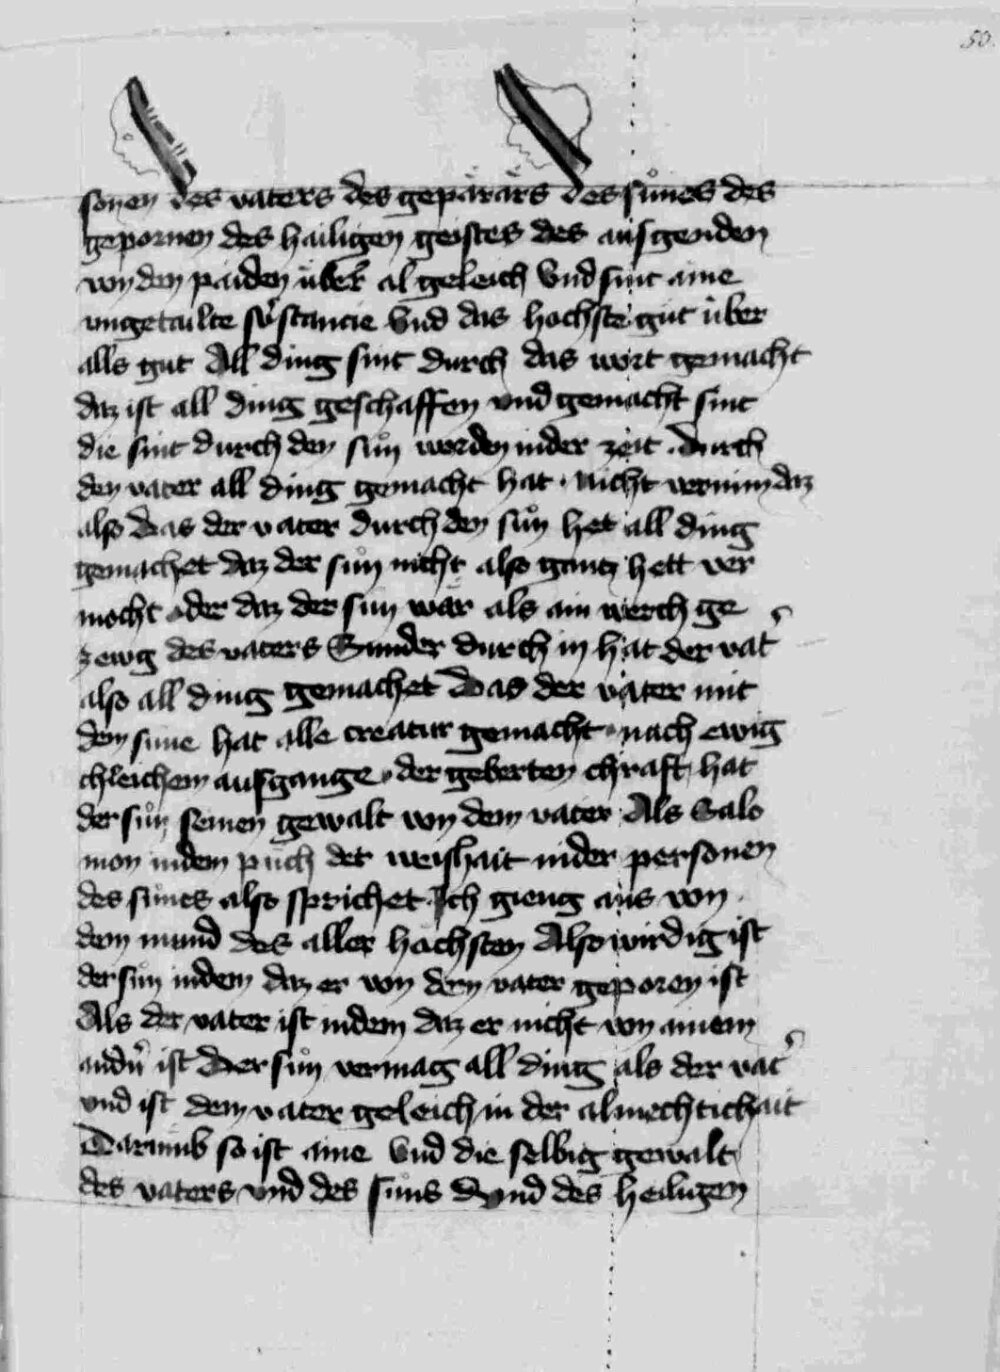 50.
sonen des vaters des gepärärs des sůnes des
gepornen des hailigen geistes des ausgenden
von den paiden über al geleich Vnd sint aine
vngetailte substancie Vnd das hochste gut über
alls gut All ding sint durch das wort gemacht
daz ist all ding geschaffen vnd gemacht sint
die sint durch den sůn worden in der zeit . durch
den vater all ding gemacht hat . nicht vernim daz
also Das der vater durch den sůn het all ding
gemachet daz der sůn nicht also gantz hett ver
mocht oder daz der sun wär als ain werch ge
zewg des vaters Sunder durch in hat der vat̓
also all ding gemachet Das der vater mit
dem sune hat alle creatur gemacht . nach ewig
chleichem ausgange . der geberten chraft hat
der sůn seinen gewalt von dem vater Als Salo
mon in dem puch der weishait in der personen
des sůnes also sprichet Ich gieng aus von
dem mund des aller höchsten Also wirdig ist
der sůn in dem daz er von dem vater geporen ist
Als der vater ist in dem daz er nicht von ainem
andn̓ ist Der sůn vermag all ding als der vat̓
vnd ist dem vater geleich in der almechtichait
Darumb so ist aine Vnd die selbig gewalt
des vaters vnd des sůns Vnd des heiligen